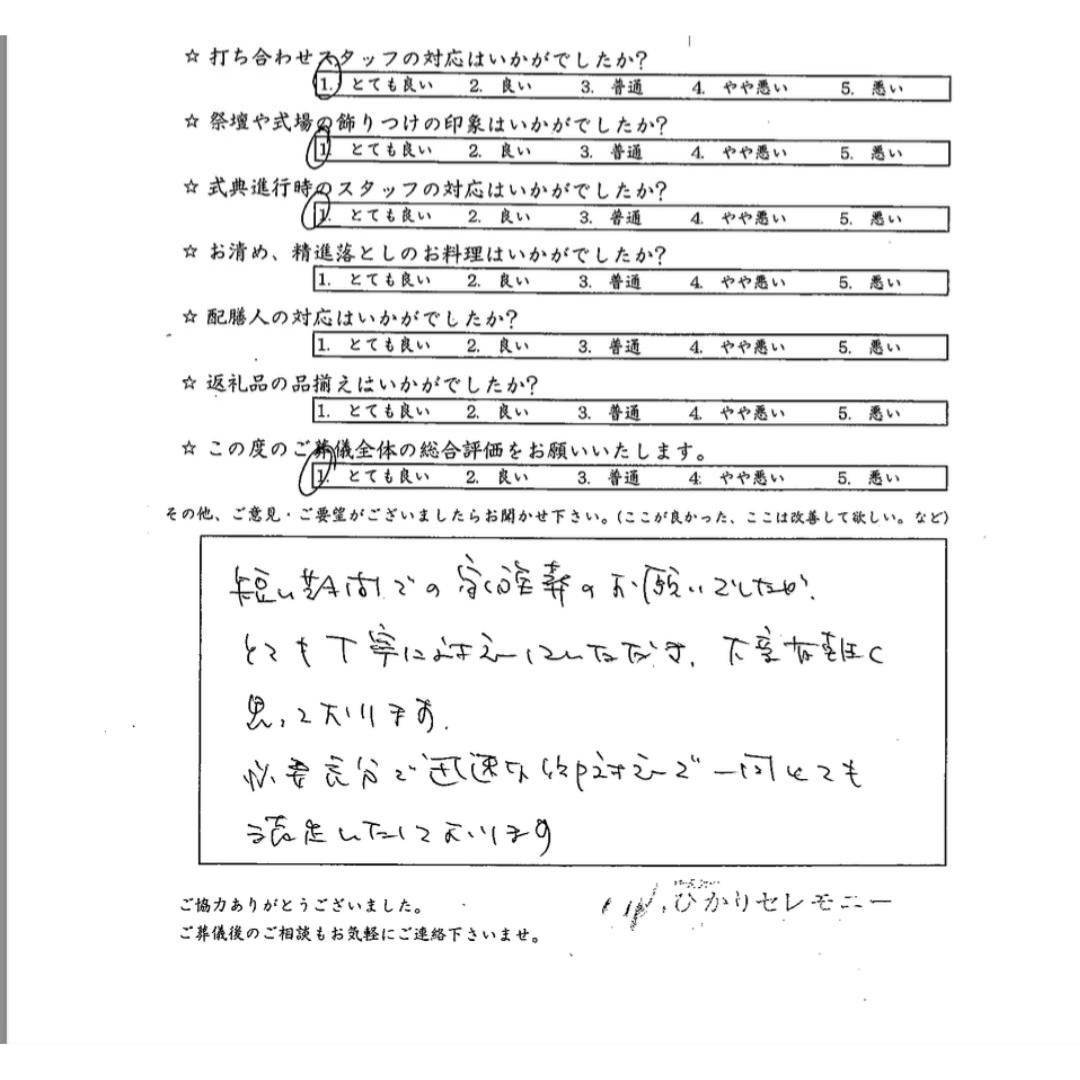 ☆ 打ち合わせスタッフの対応はいかがでしたか?
1. とても良い 2. 良い 3. 普通 4. やや悪い 5. 悪い
☆ 祭壇や式場の飾りつけの印象はいかがでしたか?
1. とても良い 2. 良い 3. 普通 4. やや悪い 5. 悪い
☆ 式典進行時のスタッフの対応はいかがでしたか?
1. とても良い 2. 良い 3. 普通 4. やや悪い 5. 悪い
☆ お清め、精進落としのお料理はいかがでしたか?
1. とても良い 2. 良い 3. 普通 4. やや悪い 5. 悪い
☆ 配膳人の対応はいかがでしたか?
1. とても良い 2. 良い 3. 普通 4. やや悪い 5. 悪い
☆ 返礼品の品揃えはいかがでしたか?
1. とても良い 2. 良い 3. 普通 4. やや悪い 5. 悪い
☆ この度のご葬儀全体の総合評価をお願いいたします。
1. とても良い 2. 良い 3. 普通 4. やや悪い 5. 悪い
その他、ご意見・ご要望がございましたらお聞かせ下さい。(ここが良かった、ここは改善して欲しい。など)
短い期間での家族葬のお願いでしたが、
とても丁寧に対応していただき、大変有難く
思っております。
必要充分で迅速な 対応で一同とても
満足いたしております
ご協力ありがとうございました。
ご葬儀後のご相談もお気軽にご連絡下さいませ。
ひかりセレモニー